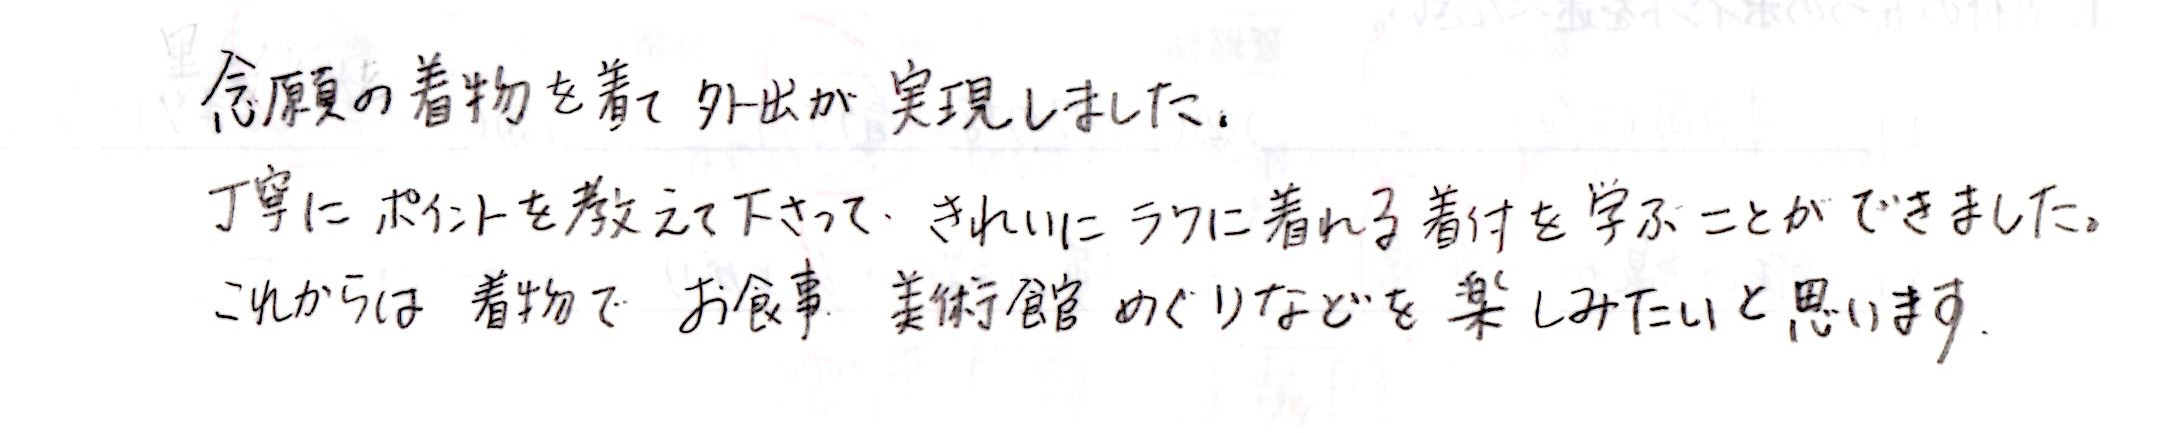 念願の着物を着て外出が実現しました.
丁寧にポイントを教えて下さって、きれいにラクに着れる着付を学ぶことができました。
これからは着物でお食事、美術館めぐりなどを楽しみたいと思います.